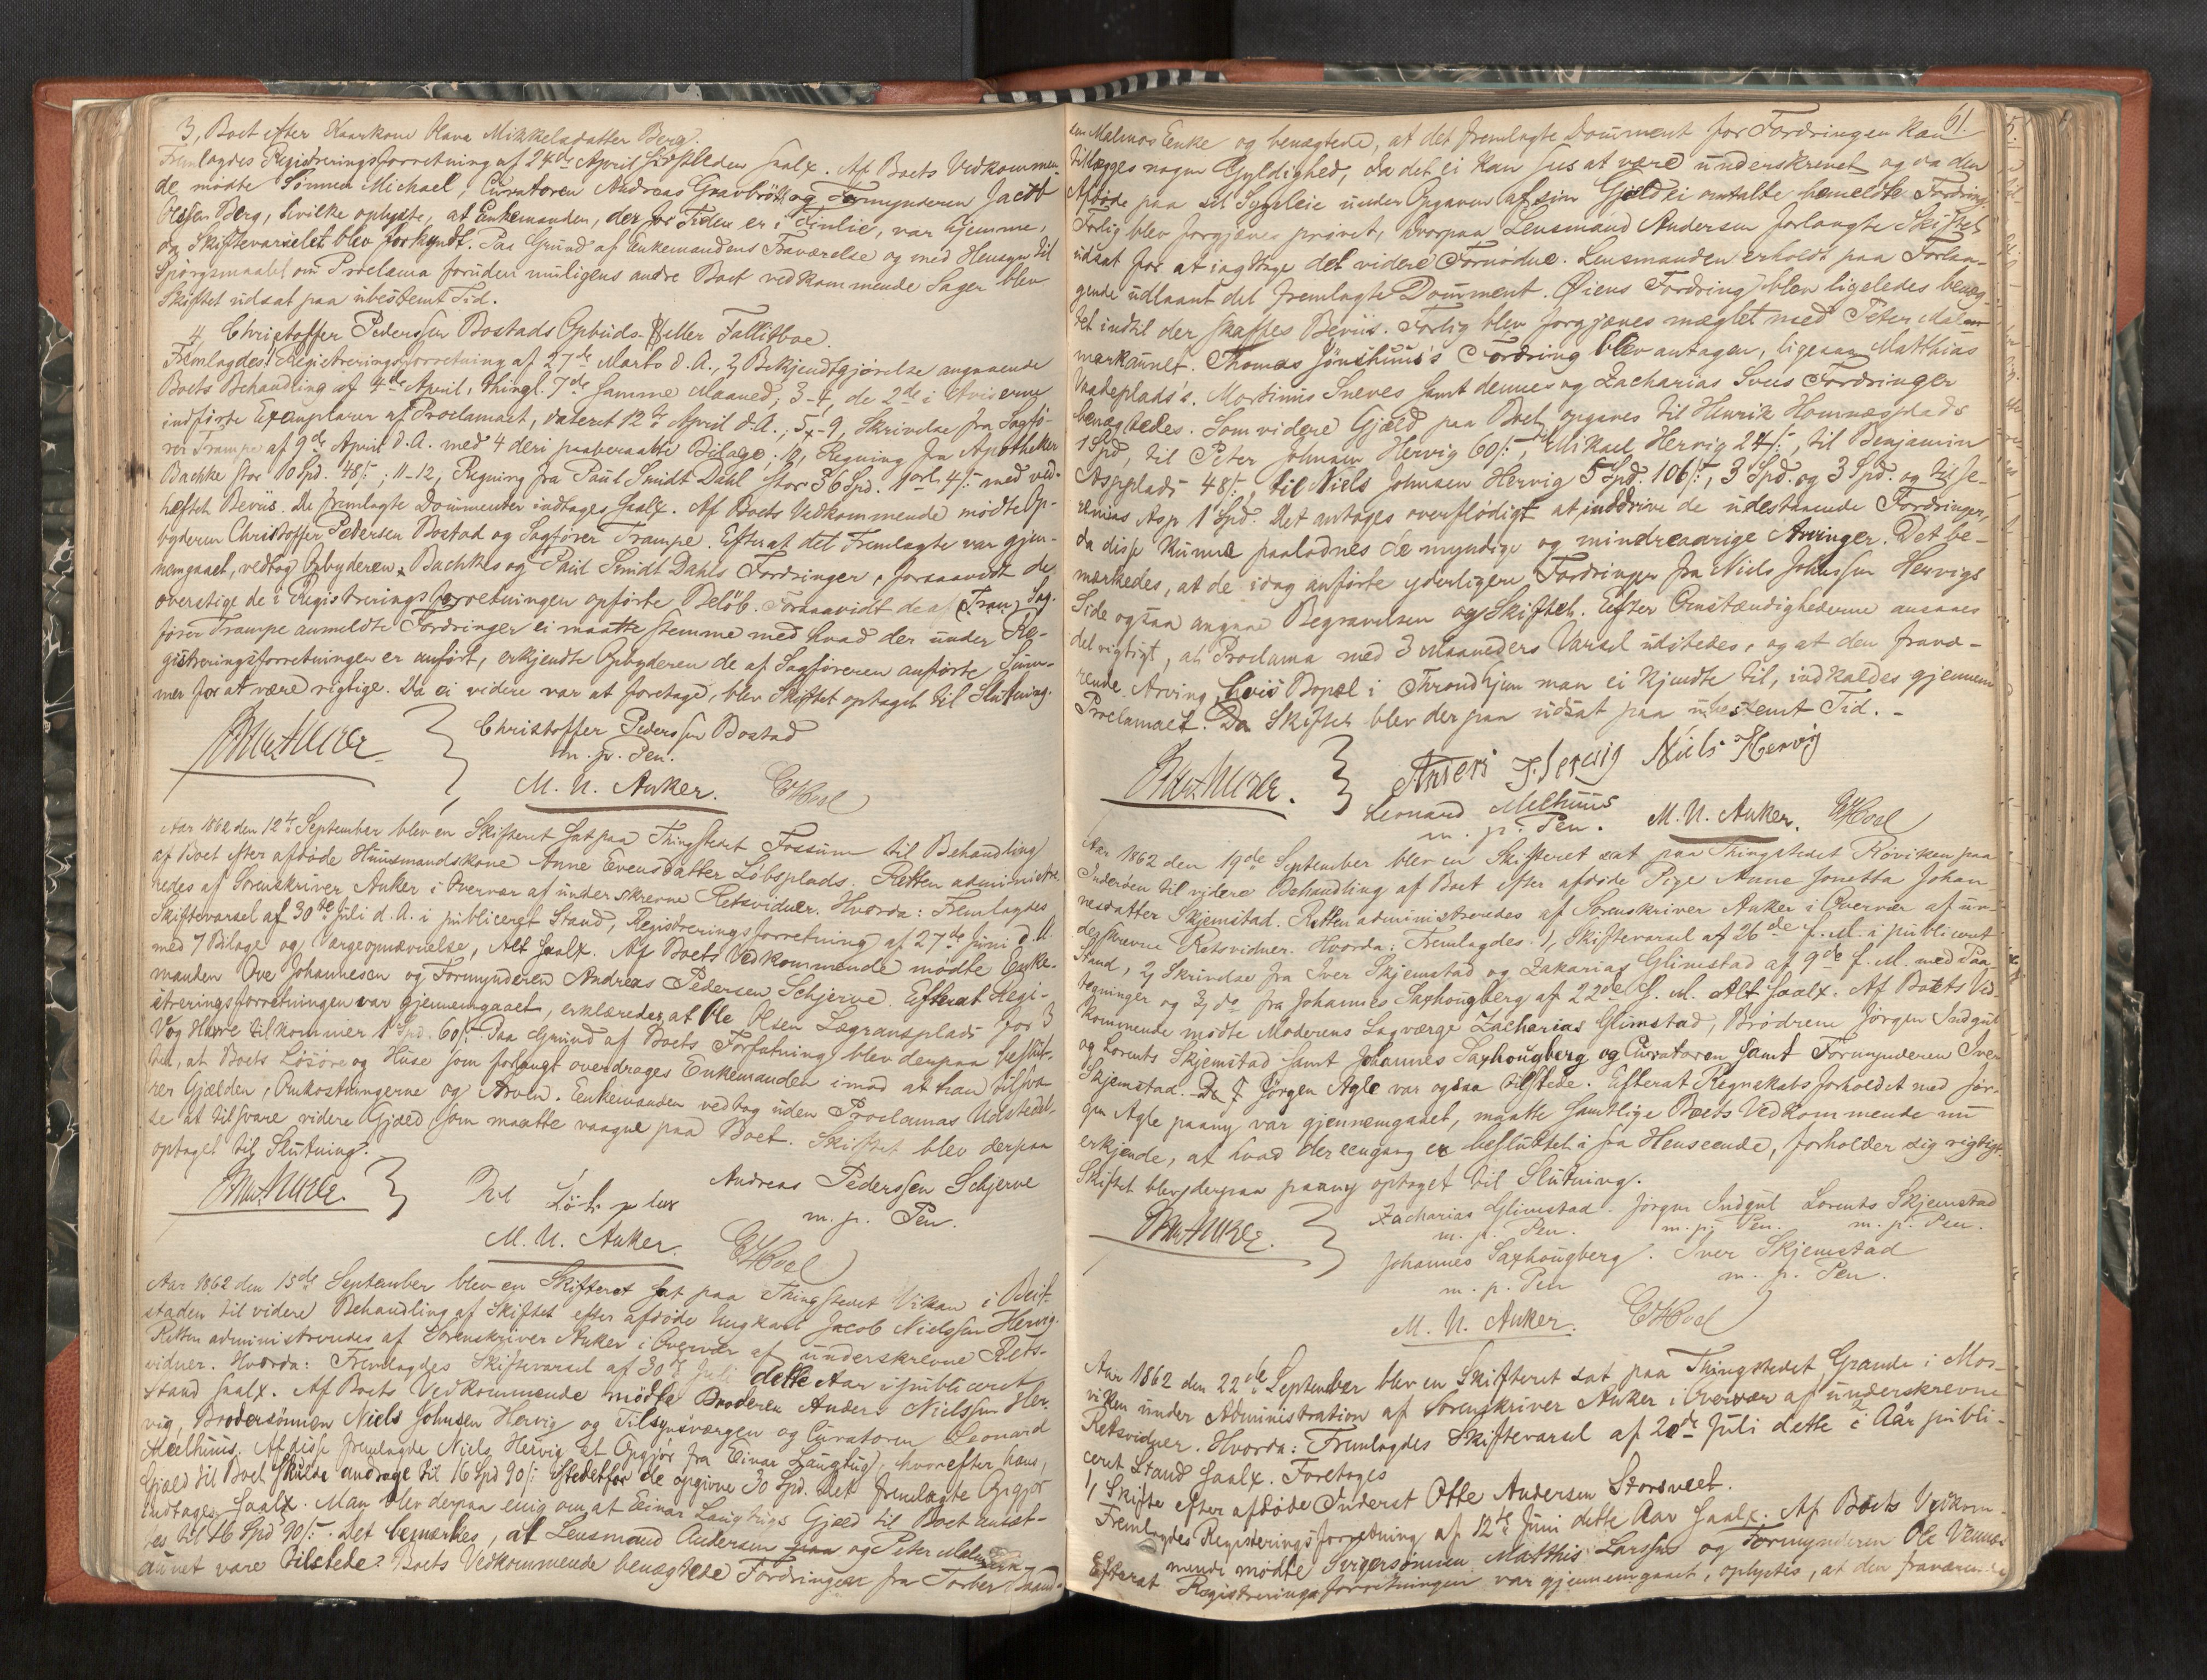 3, Boet efter Kaarkone Olava Mikkelsdatter Berg.
Fremlagdes Registreringsforretning af 24de April saalx. Af Boets Vedkommen-
de mødte Sønnen Michael, Curatoren Andreas Gravbrøt og Formynderen Jacob
Olsen Berg, hvilke oplyste, at Enkemanden, der for Tiden er i Finlie, var hjemme,
og Skiftevarselet blev forkyndt. Paa Grund af Enkemandens Fraværelse og med Hensyn til
Spørgsmaalet om Proclama foruden muligens andre Boet vedkommende Sager blev
Skiftet udsat paa ubestemt Tid.
4, Christoffer Pederssen Bostads Opbuds- eller Fallitboe.
Fremlagdes 1, Registreringsforretning af 27de Marts d. A., 2, Bekjendtgjørelse angaaende
Boets Behandling af 4de April, thingl. 7de samme Maaned; 3-4, de 2de i Aviserne
indførte Exemplarer af Proclamaet, dateret 12te April d. A.; 5-9, Skrivelse fra Sagfø-
rer Trampe af 9de April d. A. med 4 deri paaberaabte Bilage; 10, Regning fra Apotheker
Bachke stor 10 Spd. 48 /:; 11-12, Regning fra Paul Smidt Dahl stor 36 Spd. 1 ort. 4 /: med ved-
heftet Beviis. De fremlagte Documenter indtages saalx. Af Boets Vedkommende mødte Op-
byderen Christoffer Pedersen Bostad og Sagfører Trampe. Efterat det Fremlagte var gjen-
nemgaaet, vedtog Opbyderen Bachkes og Paul Smidt Dahls Fordringer, foraavidt de
overstige de i Registreringsforretningen opførte Beløb. Forsaavidt de af Sag-
fører Trampe anmeldte Fordringer ei maatte stemme med hvad der under Re-
gistreringsforretningen er anført, erkjendte Opbyderen de af Sagføreren anførte Sum-
mer for at være rigtige. Da ei videre var at foretage, blev Skiftet optaget til Slutning.
Christoffer Pederssen Bostad
m. p. Pen.
M. N. Anker. EHoel
Aar 1862 den 12te September blev en Skifteret sat paa Thingstedet Fossum til Behandling
af Boet efter afdøde Huusmandskone Anne Evensdatter Löbsplads. Retten administre-
redes af Sorenskriver Anker i Overvær af underskrevne Retsvidner. Hvorda: Fremlagdes
Skiftevarsel af 30te Juli d. A. i publiceret Stand, Registreringsforretning af 27de Juni d. A.
med 7 Bilage og Værgeopnævnelse, Alt saalx. Af Boets Vedkommende mødte Enke-
manden Ove Johannesen og Formynderen Andreas Pedersen Schjerve. Efterat Regi-
streringsforretningen var gjennemgaaet, erklæredes, at Ole Olsen Lagransplads for 3
Vog Havre tilkommer 1 Spd. 60 /:. Paa Grund af Boets Forfatning blev derpaa beslut-
tet, at Boets Løsøre og Huse som forlangt overdrages Enkemanden imod at han tilsva-
rer Gjælden, Omkostningerne og Arven. Enkemanden vedtog uden Proclamas Udstedel-
se at tilsvare videre Gjæld, som maatte vaagne paa Boet. Skiftet blev derpaa
optaget til Slutning.
Andreas Pederssen Schjerve
m. p. Pen.
M. N. Anker. EHoel
Aar 1862 den 15de September blev en Skifteret sat paa Thingstedet Vikan i Beit-
staden til videre Behandling af Skiftet efter afdøde Ungkarl Jacob Nielssen Hervig.
Retten administreredes af Sorenskriver Anker i Overvær af underskrevne Rets-
vidner. Hvorda: Fremlagdes Skiftevarsel af 30te Juli dette Aar i publiceret
Stand saalx. Af Boets Vedkommende mødte Broderen Anders Nielssen Her-
vig, Brodersønnen Niels Johnsen Hervig og Tilsynsværgen og Curatoren Leonard
Melhuus. Af disse fremlagde Niels Hervig et Opgjør fra Einar Langtvig, hvorefter hans
Gjæld til Boet skulde andrage til 16 Spd 90 /: istedetfor de opgivne 30 Spd. Det fremlagte Opgjør
indtages saalx. Man blev derpaa enig om at Einar Langtvigs Gjæld til Boet ansæt-
tes til 16 Spd 90 /:. Det bemærkes, at Lensmand Andersen og Peter Malmmark-
aunet vare tilstede. Boets Vedkommende benægtede Fordringen fra Torber
61.
len Malmos Enke og benægtede, at det fremlagte Document for Fordringen kan
tillægges nogen Gyldighed, da det ei kan sees at være underskrevet og da den
Afdøde paa sit Sygeleie under Opgaven af sin Gjæld ei omtalte bemeldte Fordring.
Forlig blev forgjæves prøvet, hvorpaa Lensmand Andersen forlangte Skiftet
udsat for at iagttage det videre Fornødne. Lensmanden erholdt paa Forlan-
gende udlaant det fremlagte Document. Øiens Fordring blev ligeledes benæg-
tet indtil der skaffes Beviis. Forlig blev forgjæves mæglet med Peter Malm-
markaunet. Thomas Jønshuus's Fordring blev antagen, ligesaa Matthias
Vaadeplads's. Mortinus Sneves samt dennes og Zacharias Svees Fordringer
benægtedes. Som videre Gjæld paa Boet opgaves til Henrik Homnæsplads
1 Spd, til Peter Johnsen Hervig 60 /:, til Mikael Hervig 24 /:, til Benjamin
Aspplads 48 /:, til Niels Johnsen Hervig 5 Spd. 106 /:, 3 Spd. og 3 Spd. og til Je-
remias Asp 1 Spd. Det antages overflødigt at inddrive de udestaaende Fordringer,
da disse kunne paalodnes de myndige og mindreaarige Arvinger. Det be-
mærkedes, at de idag anførte yderligere Fordringer fra Niels Johnssen Hervigs
Side ogsaa angaae Begravelsen og Skiftet. Efter Omstændighederne ansaaes
det vigtigt, at Proclama med 3 Maaneders Varsel udstedes, og at den fravæ-
rende Arving, hvis Bopæl i Throndhjem man ei kjendte til, indkaldes gjennem
Proclamaet. Skiftet blev derpaa udsat paa ubestemt Tid. -
Anders Hervig Niels Hervig
Leonard Melhuus
m. p. Pen. M. N. Anker. EHoel
Aar 1862 den 19de September blev en Skifteret sat paa Thingstedet Røviken paa
Inderøen til videre Behandling af Boet efter afdøde Pige Anne Jonetta Johan-
nesdatter Skjemstad. Retten administreredes af Sorenskriver Anker i Overvær af un-
derskrevne Retsvidner. Hvorda: Fremlagdes: 1, Skiftevarsel af 26de f. M. i publiceret
Stand, 2, Skrivelse fra Iver Skjemstad og Zakarias Glimstad af 9de f. M. med Paa-
tegninger og 3, do fra Johannes Saxhougberg af 22de f. M. Alt saalx. Af Boets Ved-
kommende mødte Moderens Lagværge Zacharias Glimstad, Brødrene Jørgen Indgul
og Lorents Skjemstad samt Johannes Saxhougberg og Curatoren samt Formynderen Iver
Skjemstad. Jørgen Agle var ogsaa tilstede. Efterat Regnskabsforholdet med Jør-
gen Agle paany var gjennemgaaet, maatte samtlige Boets Vedkommende nu
erkjende, at hvad der eengang er besluttet i saa Henseende, forholder sig rigtigt.
Skiftet blev derpaa paany optaget til Slutning.
Zacharias Glimstad. Jørgen Indgul Lorents Skjemstad
m. p. Pen. m. p. Pen. m. p. Pen.
Johannes Saxhougberg. Iver Skjemstad
m. p. Pen m. p. Pen.
M. N. Anker. EHoel
Aar 1862 den 22de September blev en Skifteret sat paa Thingstedet Grande i Mos-
viken under Administration af Sorenskriver Anker i Overvær af underskrevne
Retsvidner. Hvorda: Fremlagdes Skiftevarsel af 20de Juli dette Aar i publi-
ceret Stand saalx. Foretoges
1, Skifte efter afdøde Inderst Otte Andersen Storsveet.
Fremlagdes Registreringsforretning af 12te Juni dette Aar saalx. Af Boets Vedkom-
mende mødte Svigersønnen Matthis Larssen og Formynderen Ole Vennæs
Efterat Registreringsforretningen var gjennemgaaet, oplystes, at den fraværende